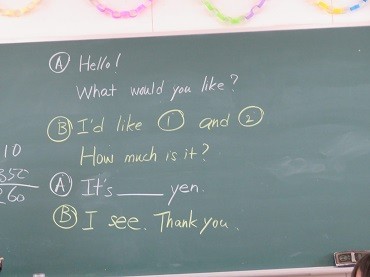 Ⓐ Hello!
What would you like?
Ⓑ I'd like ① and ②
How much is it?
Ⓐ It's ____ yen.
Ⓑ I see. Thank you.
10
350
260